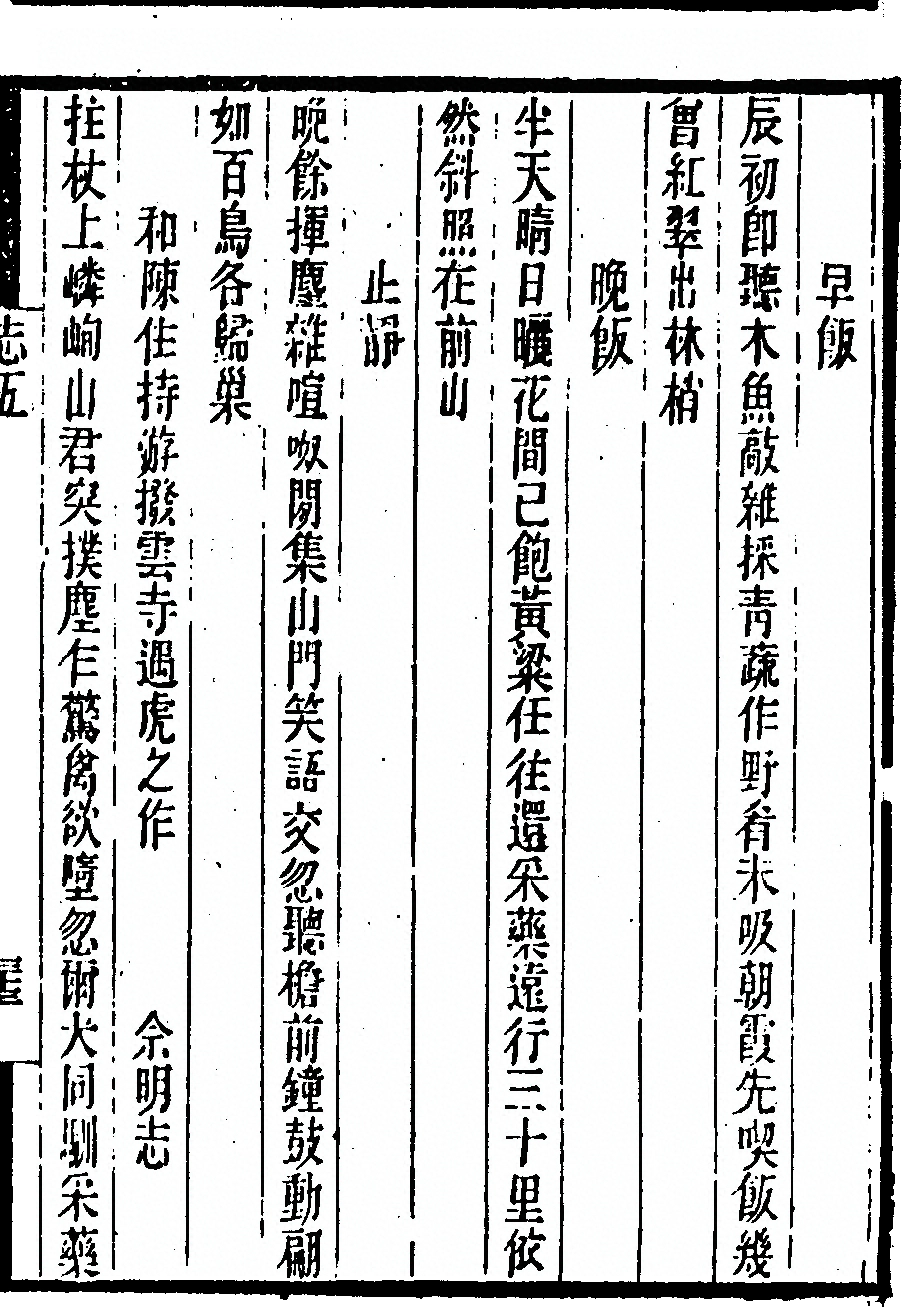 早飯
辰初即聽木魚敲雜採青蔬作野肴未吸朝霞先喫飯幾
曾紅翠出林梢
晚飯
半天晴日曬花間已飽黃粱任往還采藥遠行三十里依
然斜照在前山
止靜
晚餘揮麈雜喧呶閒集山門笑語交忽聽檐前鐘鼓動翩
如百鳥各歸巢
和陳住持游撥雲寺遇虎之作　佘明志
拄杖上嶙峋山君突撲塵乍驚禽欲墮忽爾犬同馴采藥
志五